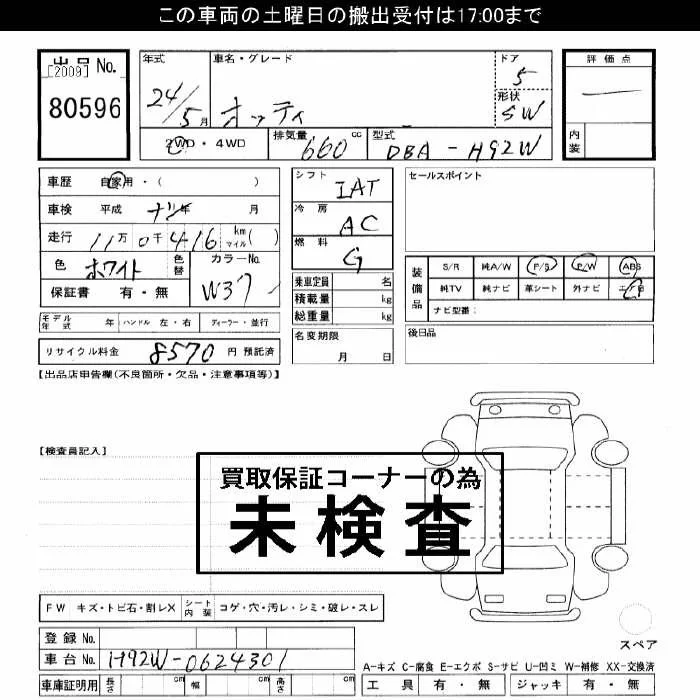 この車両の土曜日の搬出受付は17:00まで
出品No.
[2009]
80596
年式
24/5月
車名・グレード
オッティ
ドア
5
形状
SW
2WD・4WD
排気量
660cc
型式
DBA-H92W
評価点
内装
車歴 自家用・( )
車検 平成 ナシ年 月
走行 11万0千416 km マイル( )
色 ホワイト 色替
カラーNo.
W37
保証書 有・無
シフト
IAT
冷房
AC
燃料
G
乗車定員 名
積載量 kg
総重量 kg
セールスポイント
装備品
S/R 純A/W P/S P/W ABS
純TV 純ナビ 革シート 外ナビ エアB
ナビ型番:
モデル年式 年 ハンドル 左・右 ディーラー・並行
リサイクル料金 8570 円 預託済
名変期限
月 日
後日品
【出品店申告欄(不良箇所・欠品・注意事項等)】
【検査員記入】
買取保証コーナーの為
未検査
FW キズ・トビ石・割レX シート内装 コゲ・穴・汚レ・シミ・破レ・スレ
スペア
登録No.
車台No. H92W-0624301
車庫証明用 長さ cm 幅 cm 高さ cm
A-キズ C-腐食 E-エクボ S-サビ U-凹ミ W-補修 XX-交換済
工具 有・無 ジャッキ 有・無